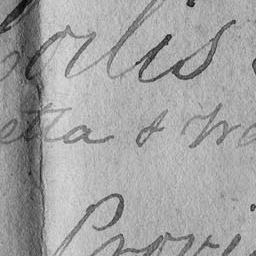 orlis
etta & Wa
Provi